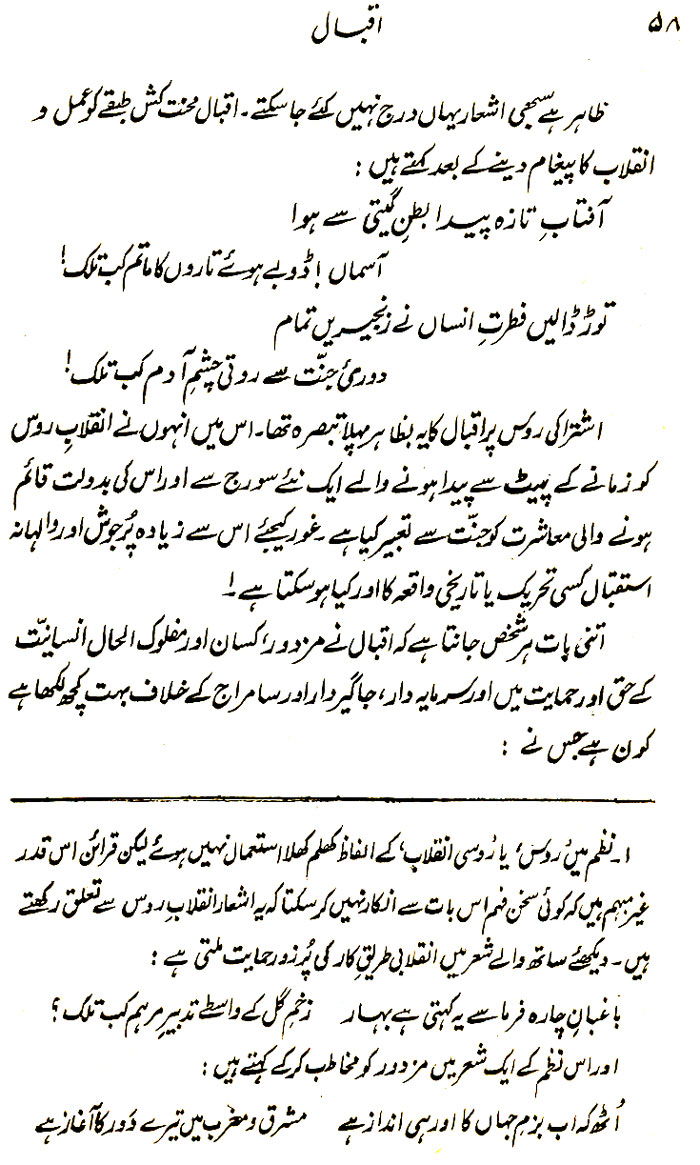 ۵۸
اقبال
ظاہر ہے سبھی اشعار یہاں درج نہیں کئے جا سکتے۔ اقبال محنت کش طبقے کو عمل و
انقلاب کا پیغام دینے کے بعد کہتے ہیں :
آفتابِ تازہ پیدا بطنِ گیتی سے ہوا
آسماں! ڈوبے ہوئے تاروں کا ماتم کب تلک!
توڑ ڈالیں فطرتِ انساں نے زنجیریں تمام
دوریٔ جنّت سے روتی چشمِ آدم کب تلک!
اشتراکی روس پر اقبال کا یہ بظاہر پہلا تبصرہ تھا۔ اس میں انہوں نے انقلابِ روس
کو زمانے کے پیٹ سے پیدا ہونے والے ایک نئے سورج سے اور اس کی بدولت قائم
ہونے والی معاشرت کو جنّت سے تعبیر کیا ہے۔ غور کیجئے اس سے زیادہ پُرجوش اور والہانہ
استقبال کسی تحریک یا تاریخی واقعہ کا اور کیا ہو سکتا ہے۔!
اتنی بات ہر شخص جانتا ہے کہ اقبال نے مزدور، کسان اور مفلوک الحال انسانیّت
کے حق اور حمایت میں اور سرمایہ دار، جاگیردار اور سامراج کے خلاف بہت کچھ لکھا ہے
کون ہے جس نے :
۱۔ نظم میں 'روس' یا 'رُوسی انقلاب' کے الفاظ کھلم کھلا استعمال نہیں ہوئے لیکن قرائن اس قدر
غیر مبہم ہیں کہ کوئی سخن فہم اس بات سے انکار نہیں کر سکتا کہ یہ اشعار انقلابِ روس سے تعلق رکھتے
ہیں۔ دیکھئے ساتھ والے شعر میں انقلابی طریقِ کار کی پُرزور حمایت ملتی ہے :
باغبانِ چارہ فرما سے یہ کہتی ہے بہار زخمِ گل کے واسطے تدبیرِ مرہم کب تلک؟
اور اس نظم کے ایک شعر میں مزدور کو مخاطب کر کے کہتے ہیں :
اُٹھ کہ اب بزمِ جہاں کا اور ہی انداز ہے مشرق و مغرب میں تیرے دَور کا آغاز ہے